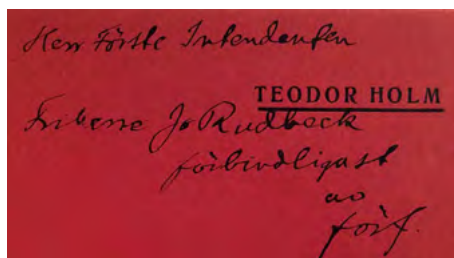 Herr Förste Intendenten
TEODOR HOLM
Friherre Jo Rudbeck
förbindligast
av
förf.